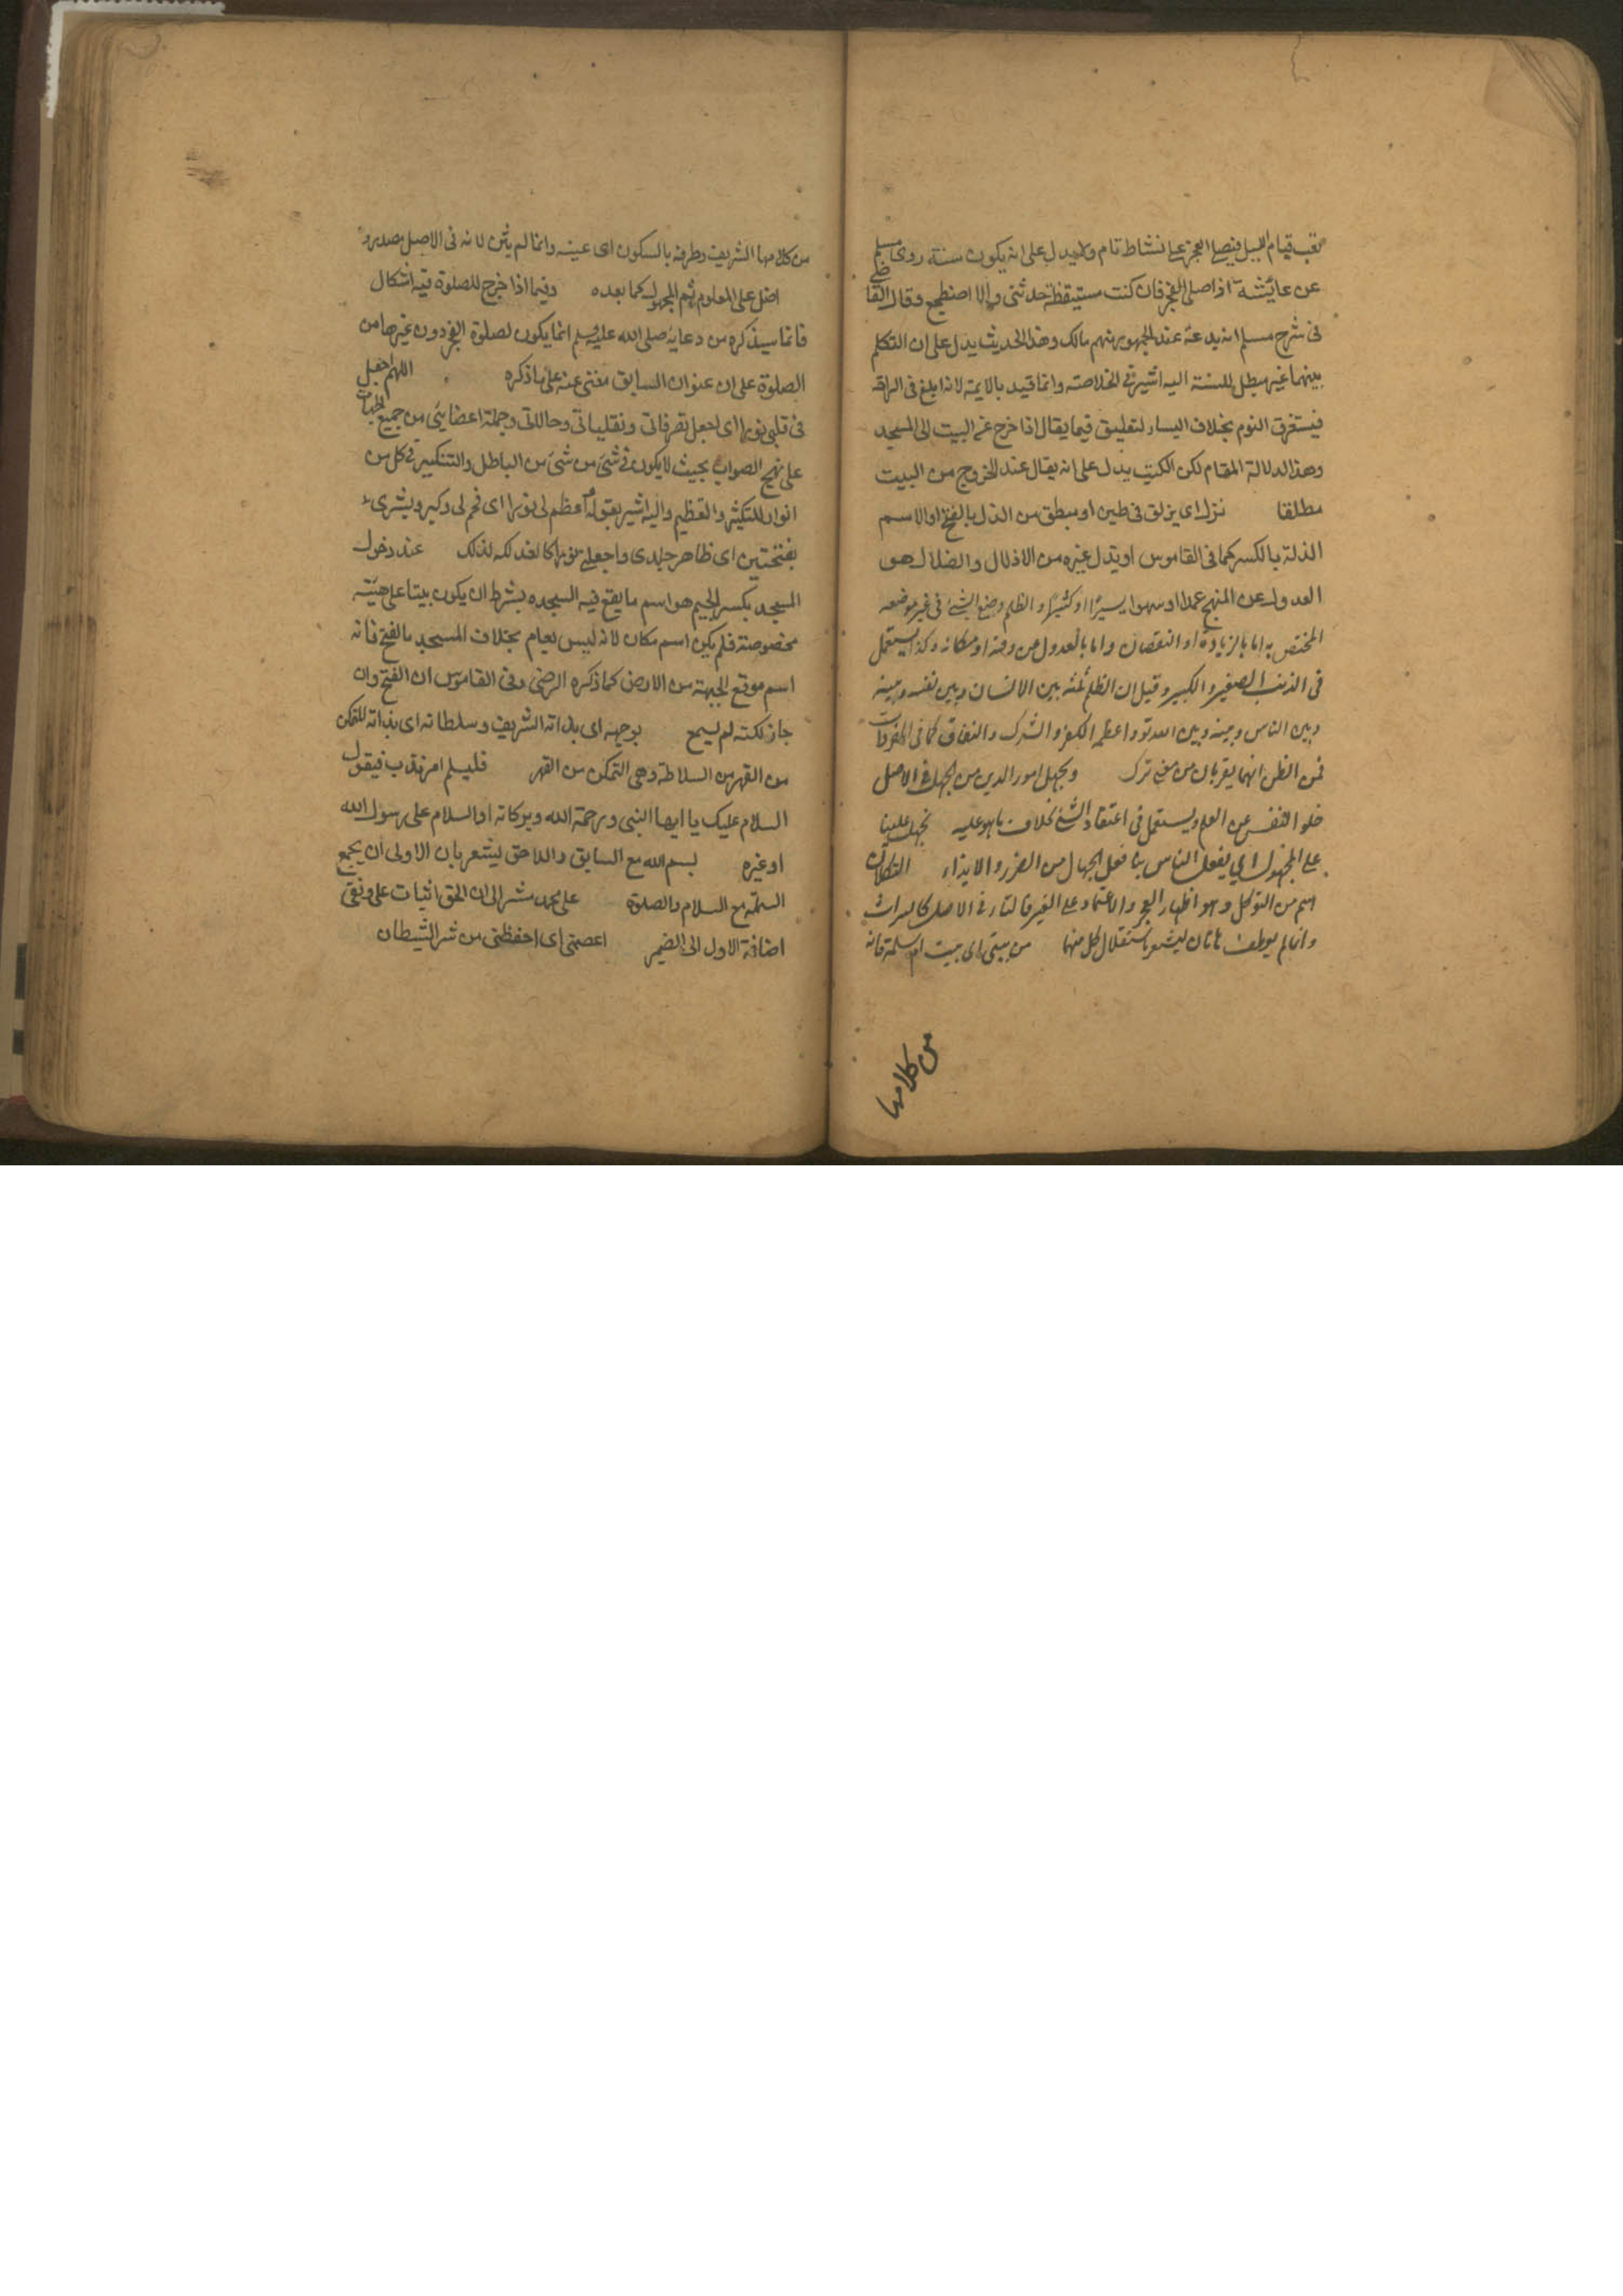 قيام الليل فيصلى الفجر على نشاط تام ولا يدل على انه يكون سنة روى مسلم
عن عايشة اذا صلى الفجر فان كنت مستيقظة حدثنى والا اضطجع وقال القاضى
فى شرح مسلم انه بدعة عند الجمهور منهم مالك وهذا الحديث يدل على ان التكلم
بينهما غير مبطل للسنة اليه اشير فى الخلاصة وانما قيد بالايمن لانه ابلغ فى الراحة
فيستغرق النوم بخلاف اليسار لتعليق فيما يقال اذا خرج من البيت الى المسجد
وهذا لدلالة المقام لكن الكتب يدل على انه يقال عند الخروج من البيت
مطلقا نزل اى يزلق فى طين او من الذل بالفتح اوالاسم
الذلة بالكسر كما فى القاموس او يذل غيره من الاذلال والضلال هو
العدول عن المنهج عمدا او سهوا يسيرًا او كثيرًا والظلم وضع الشئ فى غير موضعه
المختص به اما بالزيادة او النقصان واما بالعدول عن وقته او مكانه وكذا يستعمل
فى الذنب الصغير والكبير وقيل ان الظلم ثلثة بين الانسان وبين نفسه وبينه
وبين الناس وبينه وبين الله تع واعظمه الكفر والشرك والنفاق كما فى المفردات
فمن الظن انهما يقربان من معنى ترك ونجهل امور الدين من الجهل فى الاصل
خلو النفس عن العلم ويستعمل فى اعتقاد الشئ بخلاف ما هو عليه نجهل علينا
على المجهول اى يفعل الناس بنا فعل الجهال من الضرر والايذاء التكلان
اسم من التوكل وهو اظهار العجز والاعتماد على الغير فالتاء فى الاصل كالميراث
وانما لم يعطف هاتان ليشعر باستقلال كل منهما من بيتى اى بيت ام سلمة فانه
من كلامها
من كلامها الشريف وطرفه بالسكون اى عينه وانما لم يثن لانه فى الاصل مصدر و
اضل على المعلوم ثم المجهول كما بعده وفيما اذا خرج للصلوة فيه اشكال
فانما سيذكره من دعايه صلى الله عليه وسلم انما يكون لصلوة الفجر دون غيرها من
الصلوة على ان عنوان السابق مغنى عنه على ما ذكره اللهم اجعل
فى قلبى نورا اى اجعل تصرفاتى وتقلباتى وحالاتى وجملة اعضايى من جميع الجهات
على نهج الصواب بحيث لا يكون فى شئ من شئ من الباطل والتنكير فى كل من
انوار للتكثير والتعظيم واليه اشير بقوله اعظم لى نورا اى فخم لى وكبر وبشرى
بفتحتين اى ظاهر جلدى واجعلنى نورا كالفذلكة لذلك عند دخول
المسجد بكسر الجيم هو اسم ما يقع فيه السجده بشرط ان يكون بيتا على هيئة
مخصوصة فلم يكن اسم مكان لانه ليس بعام بخلاف المسجد بالفتح فانه
اسم موقع الجبهة من الارض كما ذكره الرضى وفى القاموس ان الفتح وان
جاز لكنه لم يسمع بوجهه اى بذاته الشريف وسلطانه اى بذاته للتمكن
من القهر من السلاطة وهى التمكن من القهر فليسلم امر ندب فيقول
السلام عليك يا ايها النبى ورحمة الله وبركاته اوالسلام على رسول الله
او غيره بسم الله مع السابق واللاحق ليشعر بان الاولى ان يجمع
السمة مع السلام والصلوة على محمد مشير الى ان الحق اثبات على ونفى
اضافة الاول الى الضمير اعصمنى اى احفظنى من شر الشيطان